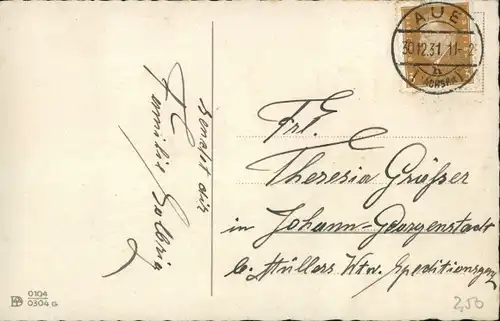 AUE
30.12.31. 11-12
(SACHSEN)
sendet dir
Familie
Frl.
Theresia Gräßer
in Johann-Georgenstadt
b. Müllers Wtw. Speditionsgesch
0104
0304 G
2,50